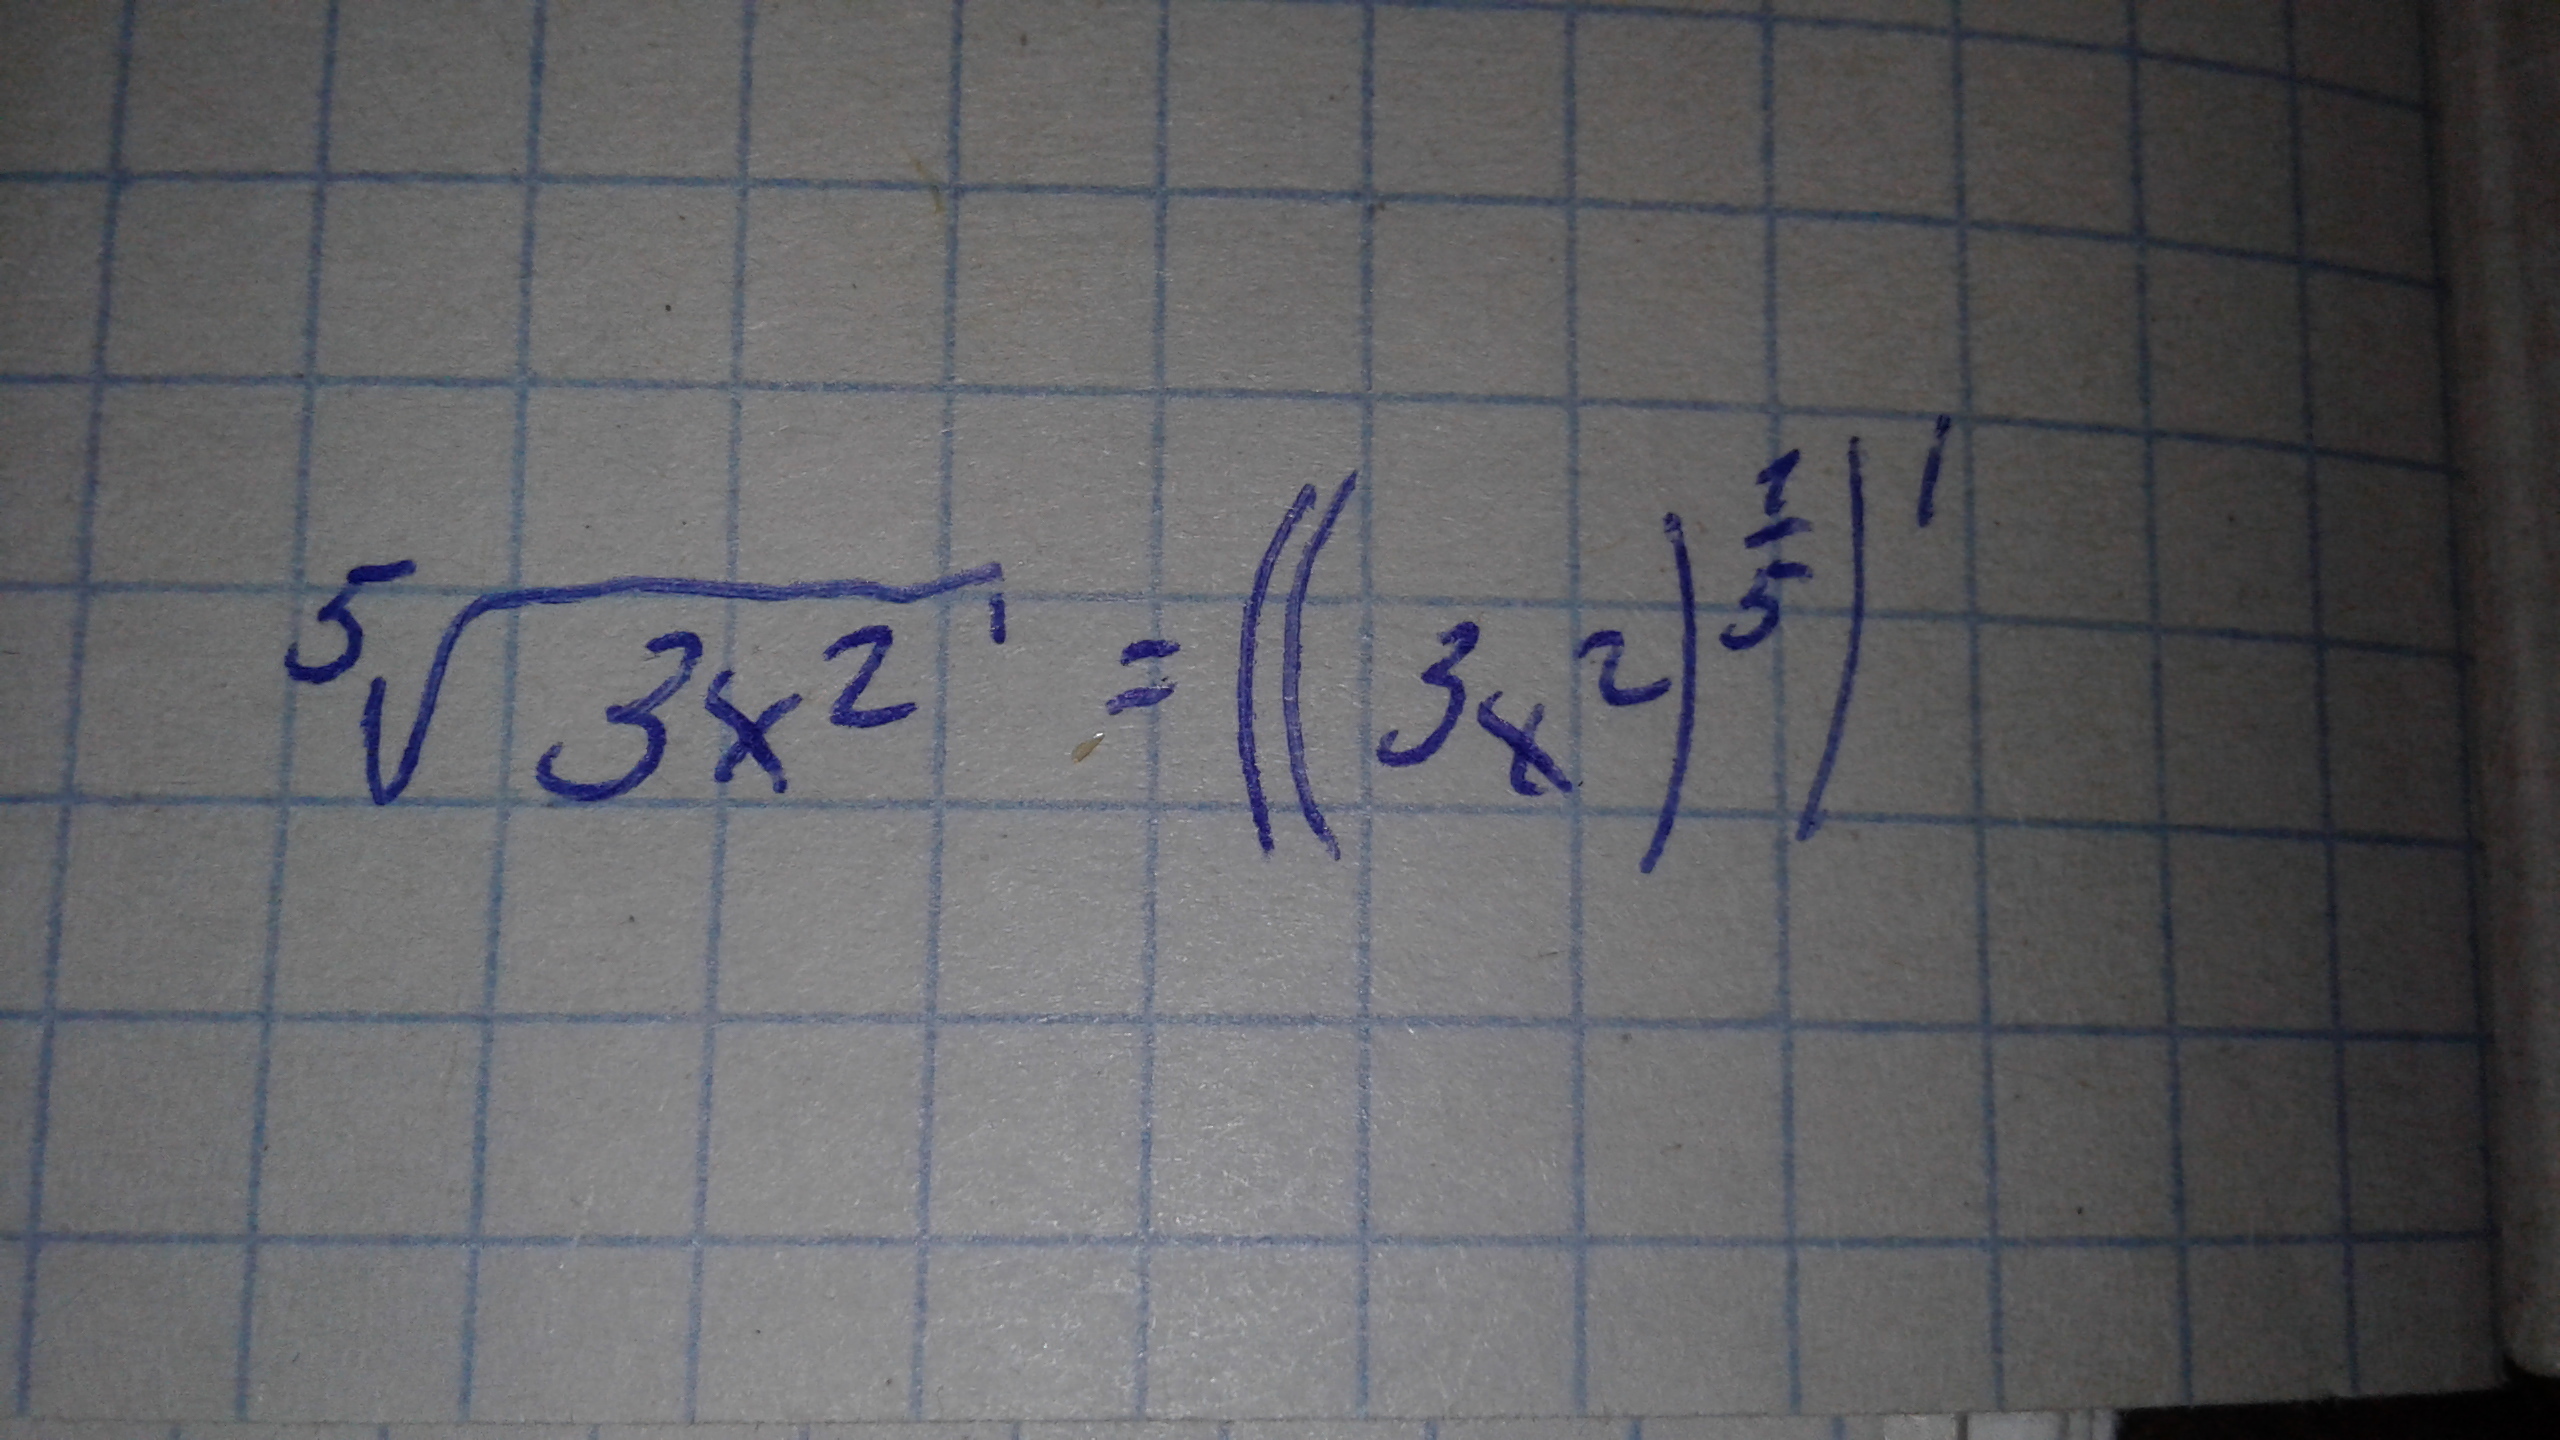 ⁵√(3x²)' = ((3x²)^(1/5))'